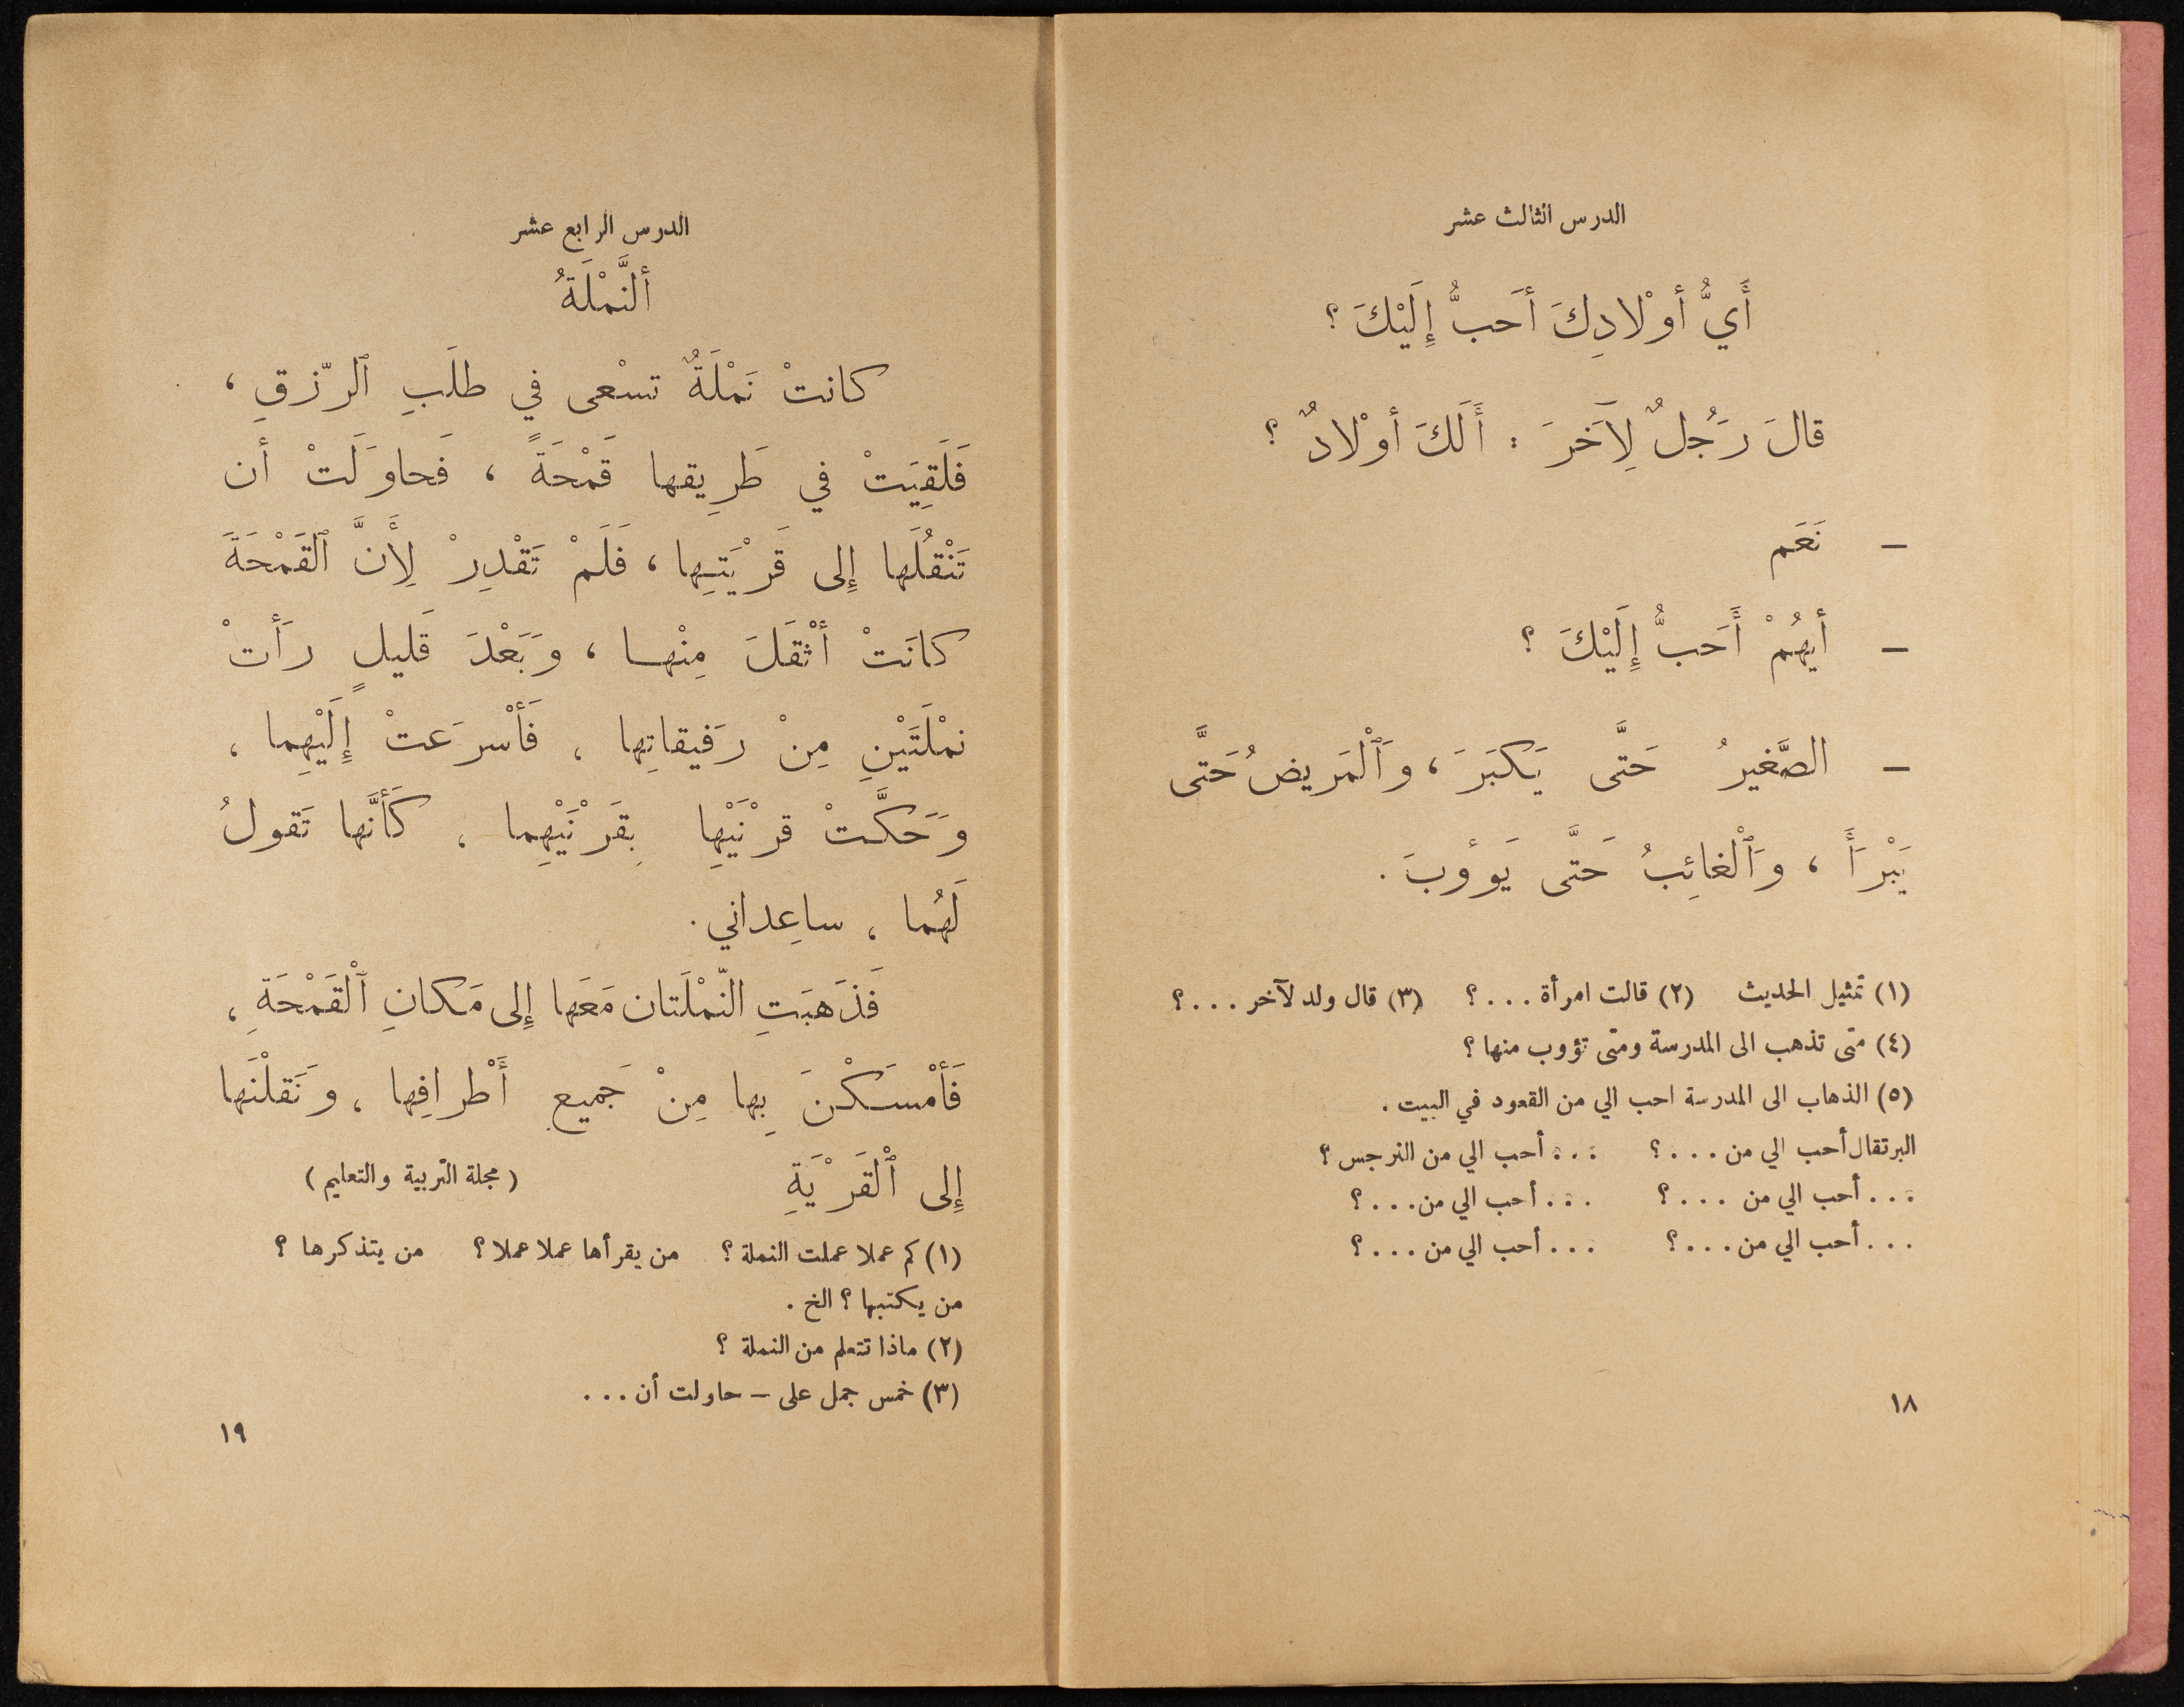 الدرس الثالث عشر
أَيُّ أوْلادِكَ أحَبُّ إِلَيْكَ ؟
قالَ رَجُلٌ لِآخَرَ : أَلَكَ أوْلادٌ ؟
— نَعَم
— أيهُمْ أَحَبُّ إِلَيْكَ ؟
— الصَّغيرُ حَتَّى يَكبَرَ ، وَٱلْمَريضُ حَتَّى
يَبْرَأَ ، وَٱلْغائِبُ حَتَّى يَوءُوبَ .
(١) تمثيل الحديث (٢) قالت امرأة . . . ؟ (٣) قال ولد لآخر . . . ؟
(٤) متى تذهب الى المدرسة ومتى تؤوب منها ؟
(٥) الذهاب الى المدرسة احب الي من القعود في البيت .
البرتقال أحب الي من . . . ؟ . . . أحب الي من النرجس ؟
. . . أحب الي من . . . ؟ . . . أحب الي من . . . ؟
. . . أحب الي من . . . ؟ . . . أحب الي من . . . ؟
١٨
الدرس الرابع عشر
ألنَّمْلَةُ
كانتْ نَمْلَةٌ تسْعى في طلَبِ ٱلرّزقِ ،
فَلَقِيَتْ في طَرِيقها قَمْحَةً ، فَحاوَلَتْ أن
تَنْقُلَها إِلى قَرْيَتِها ، فَلَمْ تَقْدِرْ لِأَنَّ ٱلقَمْحَةَ
كانَتْ أثْقَلَ مِنْها ، وَبَعْدَ قَليلٍ رَأتْ
نمْلَتَيْنِ مِنْ رَفيقاتِها ، فَأسْرَعتْ إِلَيْهِما ،
وَحَكَّتْ قرْنَيْها بِقَرْنَيْهِما ، كَأنَّها تَقولُ
لَهُما ، ساعِداني .
فَذَهبَتِ النّمْلَتان مَعَها إِلى مَكانِ ٱلْقَمْحَةِ ،
فَأمْسَكْنَ بِها مِنْ جَميع أَطْرافِها ، وَنَقلْنَها
إِلى ٱلْقَرْيَةِ (مجلة التربية والتعليم)
(١) كم عملا عملت النملة ؟ من يقرأها عملا عملا ؟ من يتذكرها ؟
من يكتبها ؟ الخ .
(٢) ماذا تتعلم من النملة ؟
(٣) خمس جمل على — حاولت أن . . .
١٩